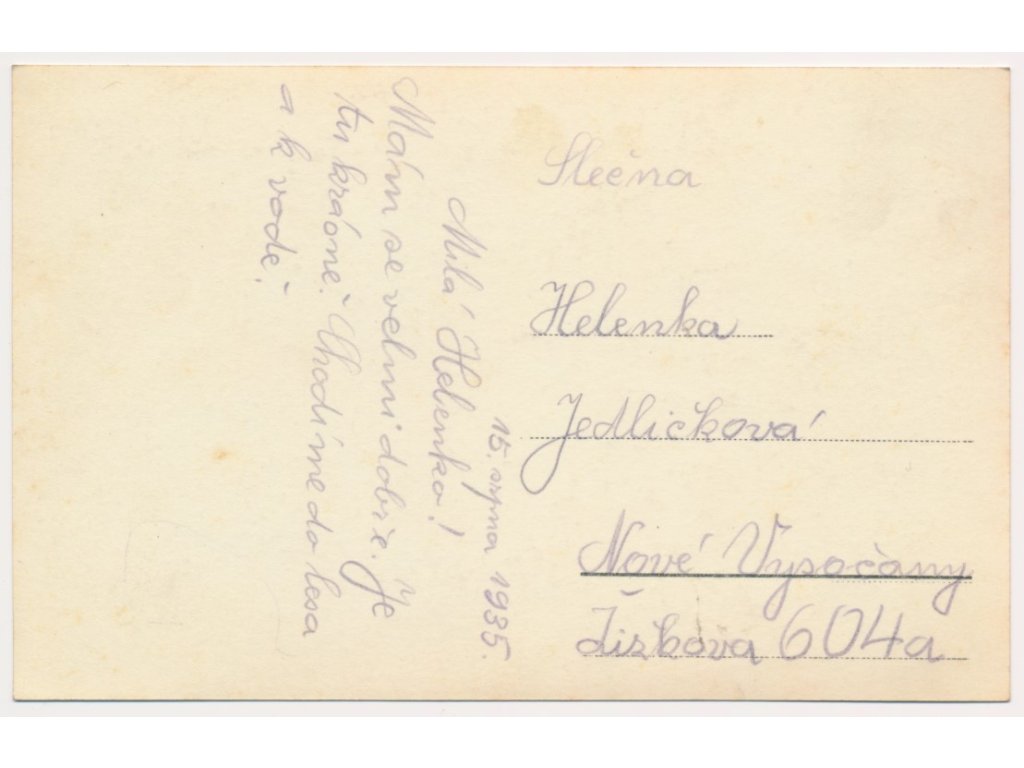 15. srpna 1935.
Milá Helenko!
Mám se velmi dobře. Je
tu krásně. Chodíme do lesa
a k vodě.
Slečna
Helenka
Jedličková
Nové Vysočany
Žižkova 604a